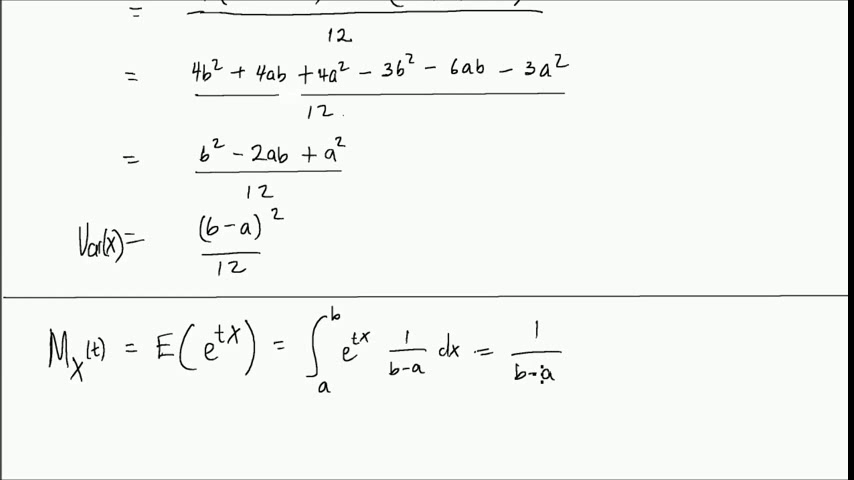 = 12
= 4b² + 4ab + 4a² − 3b² − 6ab − 3a² / 12
= b² − 2ab + a² / 12
Var(X) = (b−a)² / 12
M_X(t) = E(e^{tX}) = ∫_a^b e^{tx} 1/(b−a) dx = 1/(b−a)